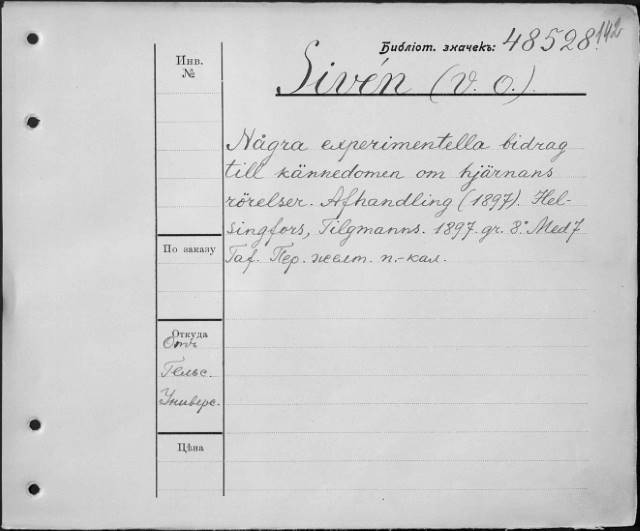 Библіот. значекъ: 48528/142
Инв.
№
Sivén (V. O.).
Några experimentella bidrag
till kännedomen om hjärnans
rörelser. Afhandling (1897). Hel-
singfors, Tilgmanns. 1897. gr. 8° Med 7
Taf. Пер. желт. п.-кал.
По заказу
Откуда
Отъ
Гельс.
Универс.
Цѣна